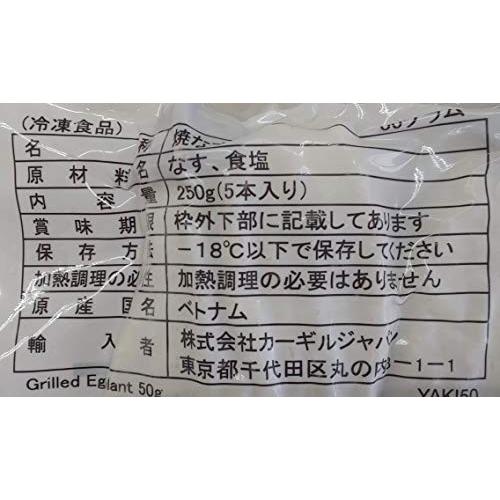 (冷凍食品) 50グラム
名 称 焼な
原材料名 なす、食塩
内容量 250g(5本入り)
賞味期限 枠外下部に記載してあります
保存方法 −18℃以下で保存してください
加熱調理の必性 加熱調理の必要はありません
原産国名 ベトナム
輸入者 株式会社カーギルジャパン
東京都千代田区丸の内3−1−1
Grilled Eggplant 50g YAKI50